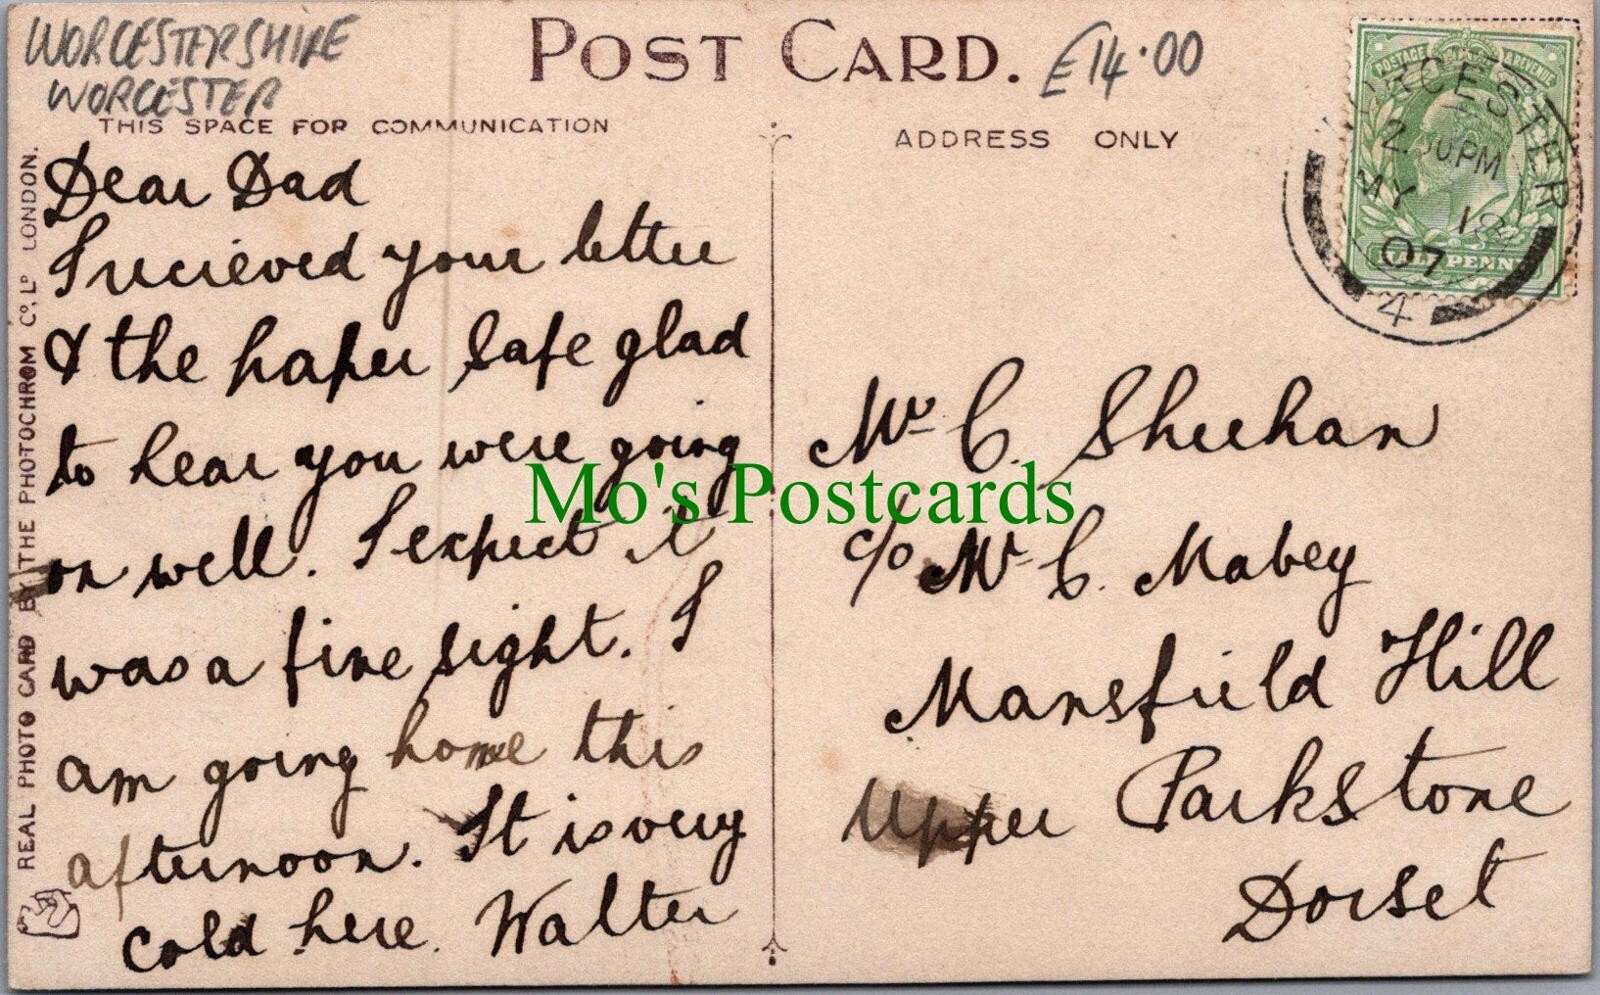 WORCESTERSHIRE
WORCESTER
POST CARD.
£14.00
THIS SPACE FOR COMMUNICATION
ADDRESS ONLY
Dear Dad
I recieved your letter
& the paper safe glad
to hear you were going
on well. I expect it
was a fine sight. I
am going home this
afternoon. It is very
cold here. Walter
REAL PHOTO CARD BY THE PHOTOCHROM Co. Ld LONDON.
POSTAGE & REVENUE
HALF PENNY
WORCESTER
PM
MY 18
07
4
Mr C. Sheehan
c/o Mr C. Mabey
Mansfield Hill
Upper Parkstone
Dorset
Mo's Postcards